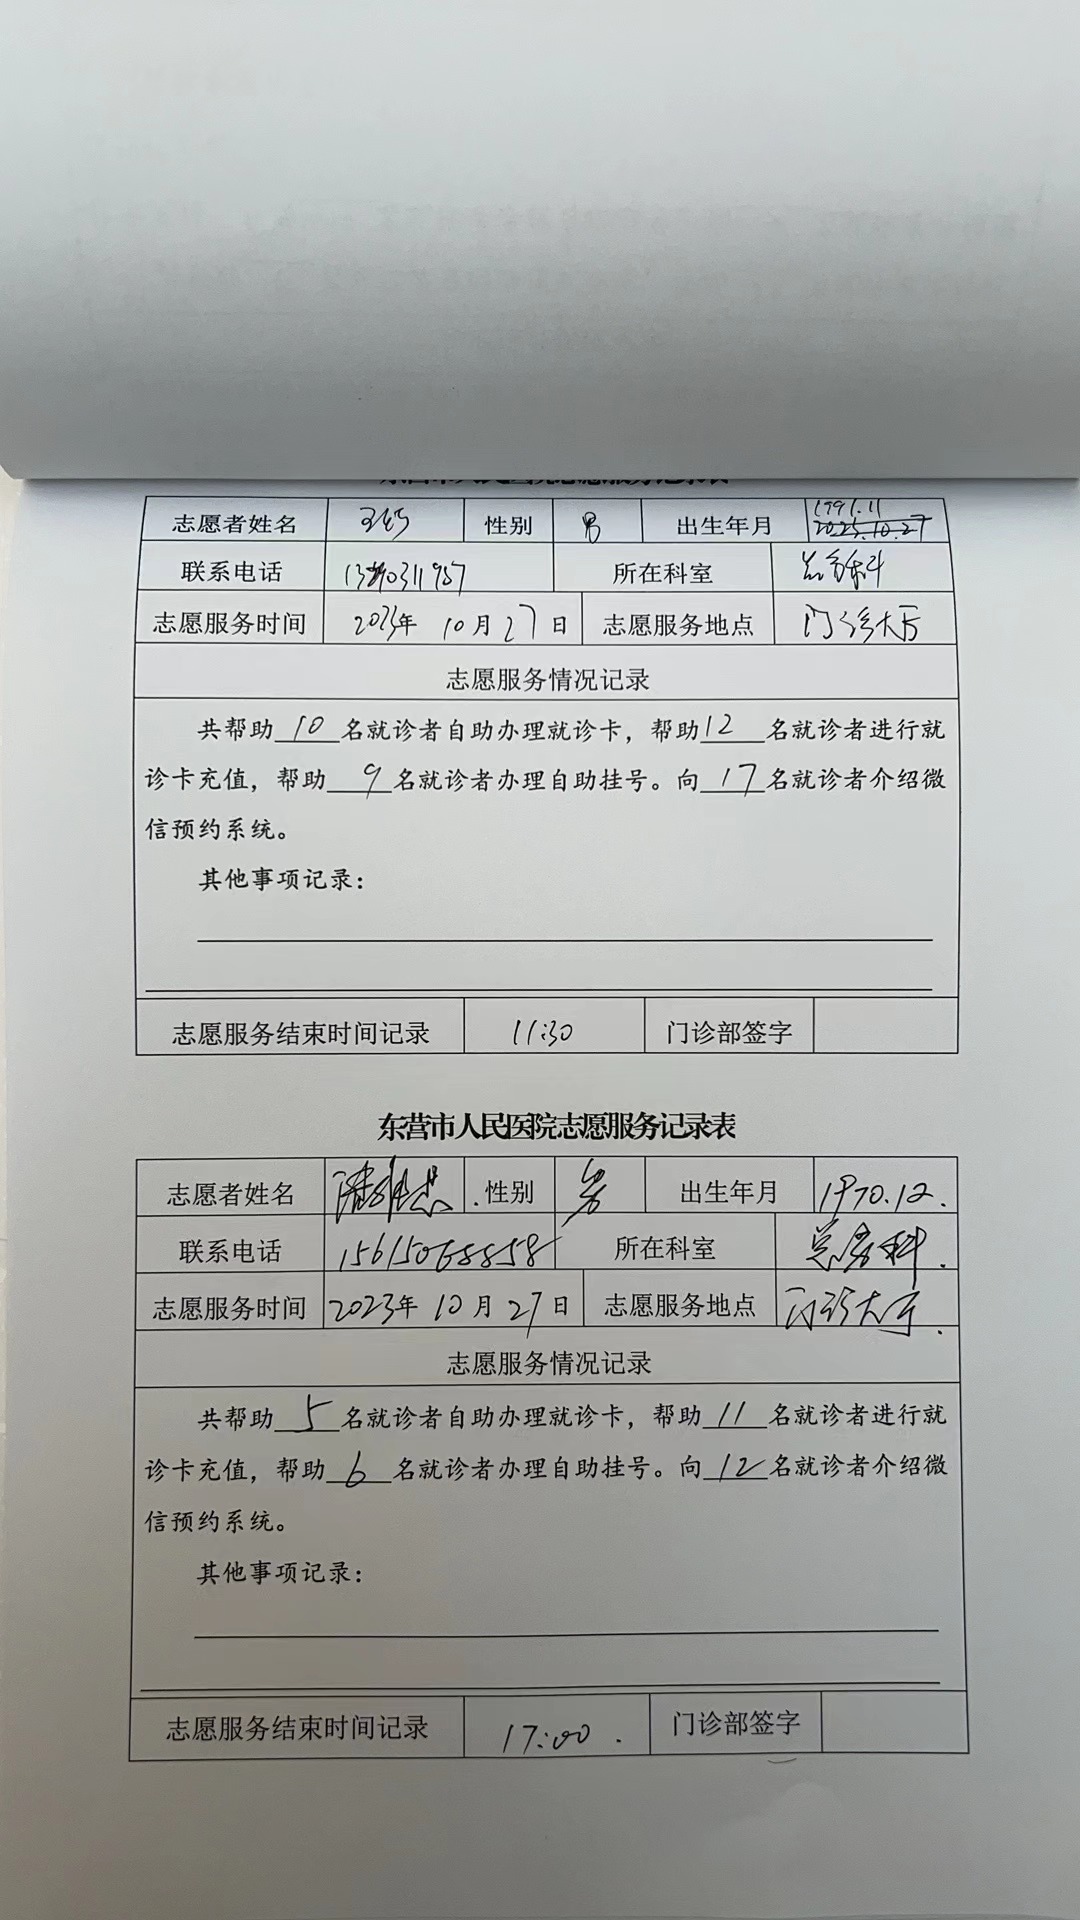 东营市人民医院志愿服务记录表
志愿者姓名 性别 男 出生年月 1991.11 2023.10.27
联系电话 所在科室 总务科
志愿服务时间 2023年 10月27日 志愿服务地点 门诊大厅
志愿服务情况记录
共帮助10名就诊者自助办理就诊卡，帮助12名就诊者进行就
诊卡充值，帮助9名就诊者办理自助挂号。向17名就诊者介绍微
信预约系统。
其他事项记录：
志愿服务结束时间记录 11:30 门诊部签字
东营市人民医院志愿服务记录表
志愿者姓名 性别 男 出生年月 1970.12.
联系电话 15615068858 所在科室 总务科.
志愿服务时间 2023年 10月27日 志愿服务地点 门诊大厅.
志愿服务情况记录
共帮助5名就诊者自助办理就诊卡，帮助11名就诊者进行就
诊卡充值，帮助6名就诊者办理自助挂号。向12名就诊者介绍微
信预约系统。
其他事项记录：
志愿服务结束时间记录 17:00. 门诊部签字